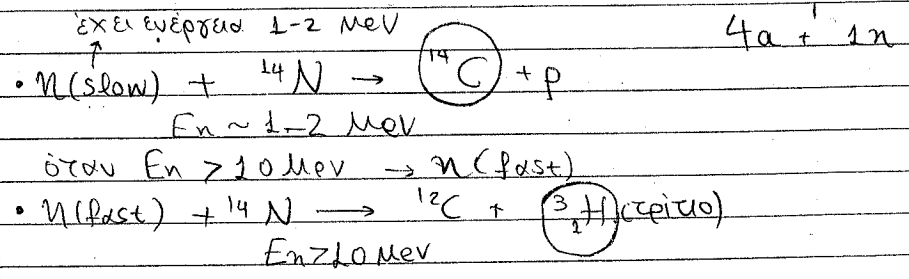 έχει ενέργεια 1-2 MeV
4α + 1n
• n(slow) + ¹⁴N → ¹⁴C + p
En ~ 1-2 MeV
όταν En > 10 MeV → n(fast)
• n(fast) + ¹⁴N → ¹²C + ³₁H (τρίτιο)
En > 10 MeV